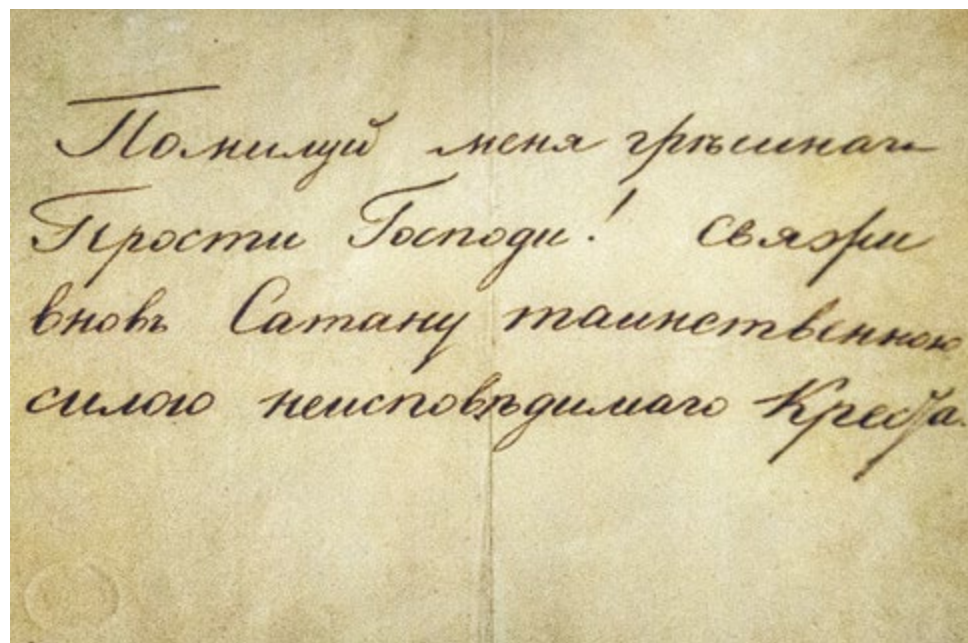 Помилуй меня грѣшнаго
Прости Господи! свяжи
вновь Сатану таинственною
силою неисповѣдимаго Креста.